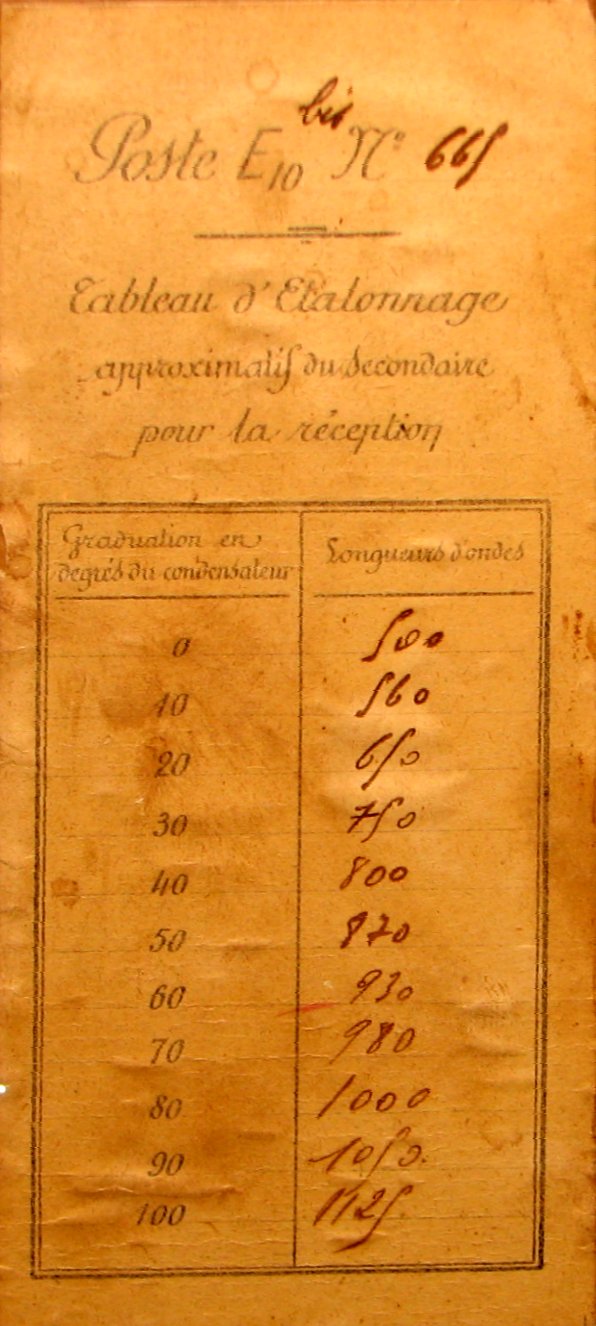 Poste E10 bis N° 665
Tableau d'Etalonnage
approximatif du Secondaire
pour la réception
Graduation en Longueurs d'ondes
degrés du condensateur
0 500
10 560
20 650
30 750
40 800
50 870
60 930
70 980
80 1000
90 1050.
100 1125